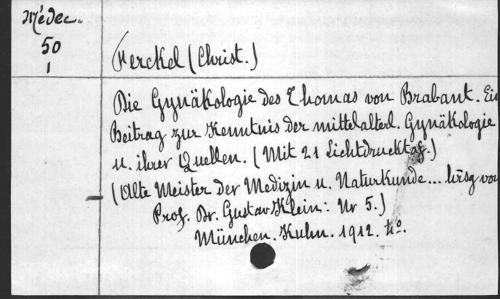 Médec.
50
1
Ferckel (Christ.)
Die Gynäkologie des Thomas von Brabant. Ein
Beitrag zur Kenntnis der mittelalterl. Gynäkologie
u. ihrer Quellen. (Mit 21 Lichtdrucktaf.)
(Alte Meister der Medizin u. Naturkunde... hrsg von
Prof. Dr. Gustav Klein: Nr 5.)
München. Kuhn. 1912. 4o.